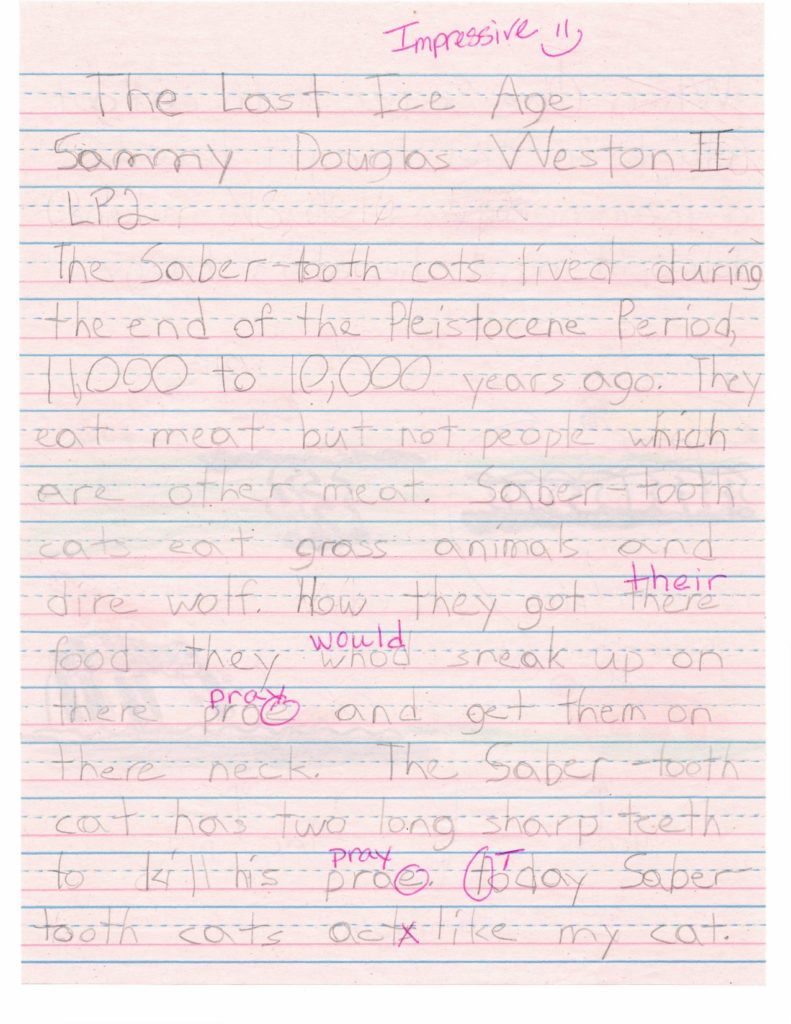 Impressive
The Last Ice Age
Sammy Douglas Weston II
LP2
The Saber-tooth cats lived during
the end of the Pleistocene Period,
11,000 to 10,000 years ago. They
eat meat but not people which
are other meat. Saber-tooth
cats eat grass animals and
dire wolf. How they got there
their
food they whod sneak up on
would
there proe and get them on
pray
there neck. The Saber-tooth
cat has two long sharp teeth
to kill his proe. today Saber-
pray T
tooth cats act like my cat.